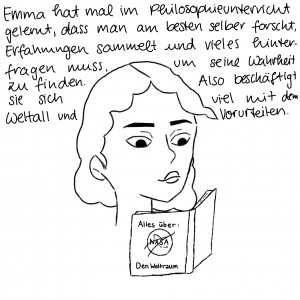 Emma hat mal im Philosophieunterricht
gelernt, dass man am besten selber forscht,
Erfahrungen sammelt und vieles hinter-
fragen muss, um seine Wahrheit
zu finden. Also beschäftigt
sie sich viel mit dem
Weltall und Vorurteilen.
Alles über:
NASA
Den Weltraum